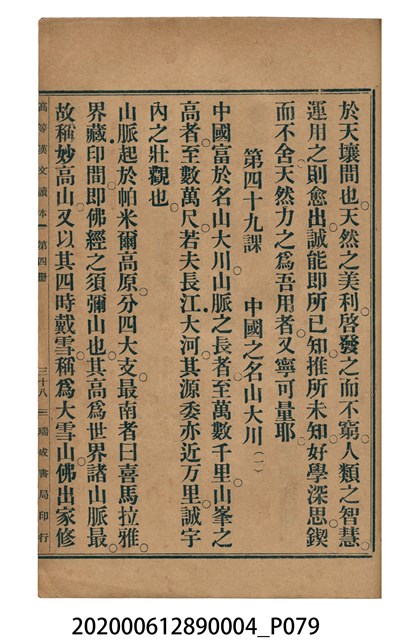 於天壤間也天然之美利啓發之而不窮人類之智慧
運用之則愈出誠能即所已知推所未知好學深思鍥
而不舍天然力之爲吾用者又寧可量耶
第四十九課　中國之名山大川（一）
中國富於名山大川山脈之長者至萬數千里山峯之
高者至數萬尺若夫長江大河其源委亦近万里誠宇
內之壯觀也
山脈起於帕米爾高原分四大支最南者曰喜馬拉雅
界藏印間即佛經之須彌山也其高爲世界諸山脈最
故稱妙高山又以其四時戴雪稱爲大雪山佛出家修
高等漢文讀本 第四册 三十八 瑞成書局印行
202000612890004_P079